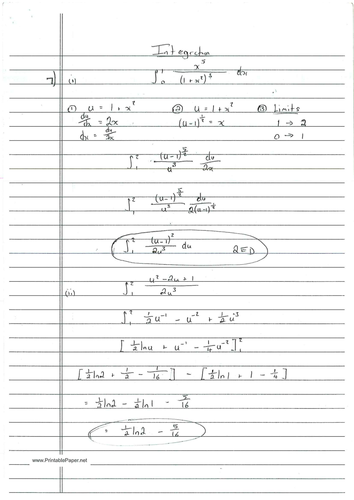 Integration
7) (i) ∫₀¹ x⁵/(1+x²)³ dx
① u = 1+x² ② u = 1+x² ③ Limits
du/dx = 2x (u-1)^(1/2) = x 1 → 2
dx = du/2x 0 → 1
∫₁² (u-1)^(5/2)/u³ du/2x
∫₁² (u-1)^(5/2)/u³ du/2(u-1)^(1/2)
∫₁² (u-1)²/2u³ du QED
(ii) ∫₁² u²-2u+1/2u³
∫₁² 1/2 u⁻¹ - u⁻² + 1/2 u⁻³
[1/2 ln u + u⁻¹ - 1/4 u⁻²]₁²
[1/2 ln2 + 1/2 - 1/16] - [1/2 ln1 + 1 - 1/4]
= 1/2 ln2 - 1/2 ln1 - 5/16
= 1/2 ln2 - 5/16
www.PrintablePaper.net